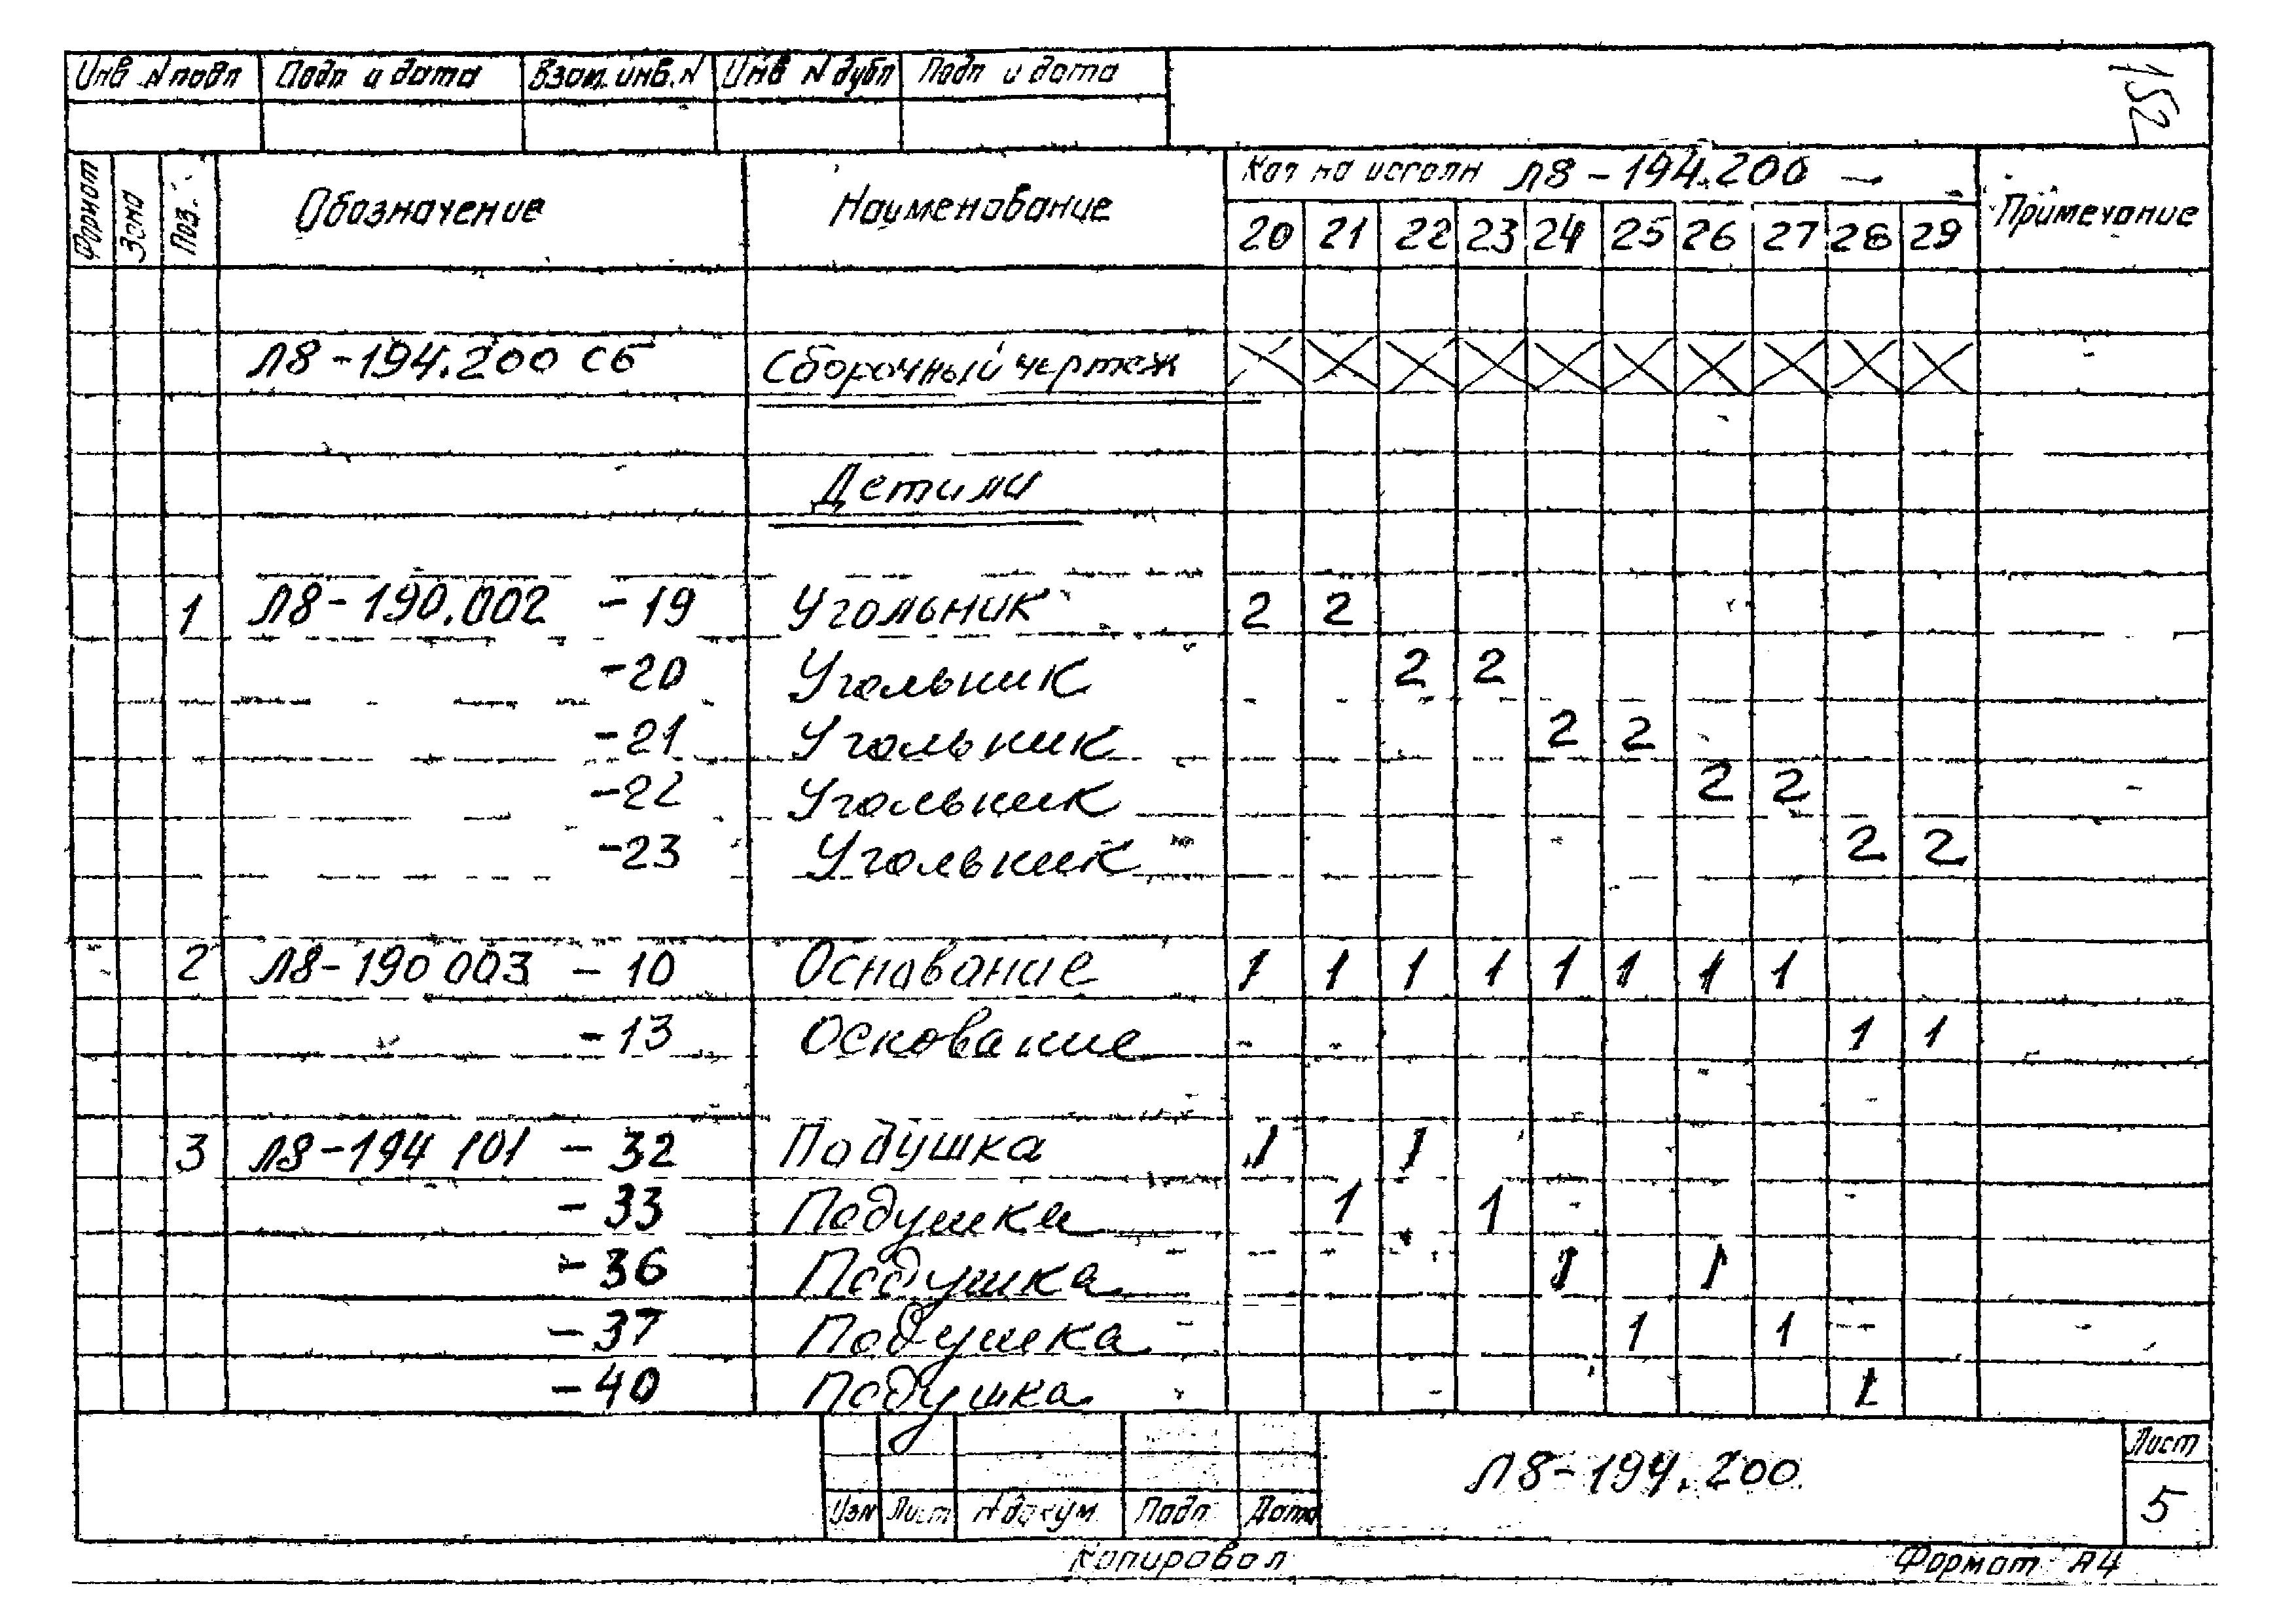 Инв N подл Подп и дата Взам. инв. N Инв N дубл Подп и дата
152
Формат Зона Поз. Обозначение Наименование Кол на исполн Л8-194.200 - Примечание
20 21 22 23 24 25 26 27 28 29
Л8-194.200 СБ Сборочный чертеж X X X X X X X X X X
Детали
1 Л8-190.002 -19 Угольник 2 2
-20 Угольник 2 2
-21 Угольник 2 2
-22 Угольник 2 2
-23 Угольник 2 2
2 Л8-190 003 -10 Основание 1 1 1 1 1 1 1 1
-13 Основание 1 1
3 Л8-194 101 -32 Подушка 1 1
-33 Подушка 1 1
-36 Подушка 1 1
-37 Подушка 1 1
-40 Подушка 1
Изм Лист N докум. Подп Дата
Л8-194.200
Лист
5
Копировал Формат А4